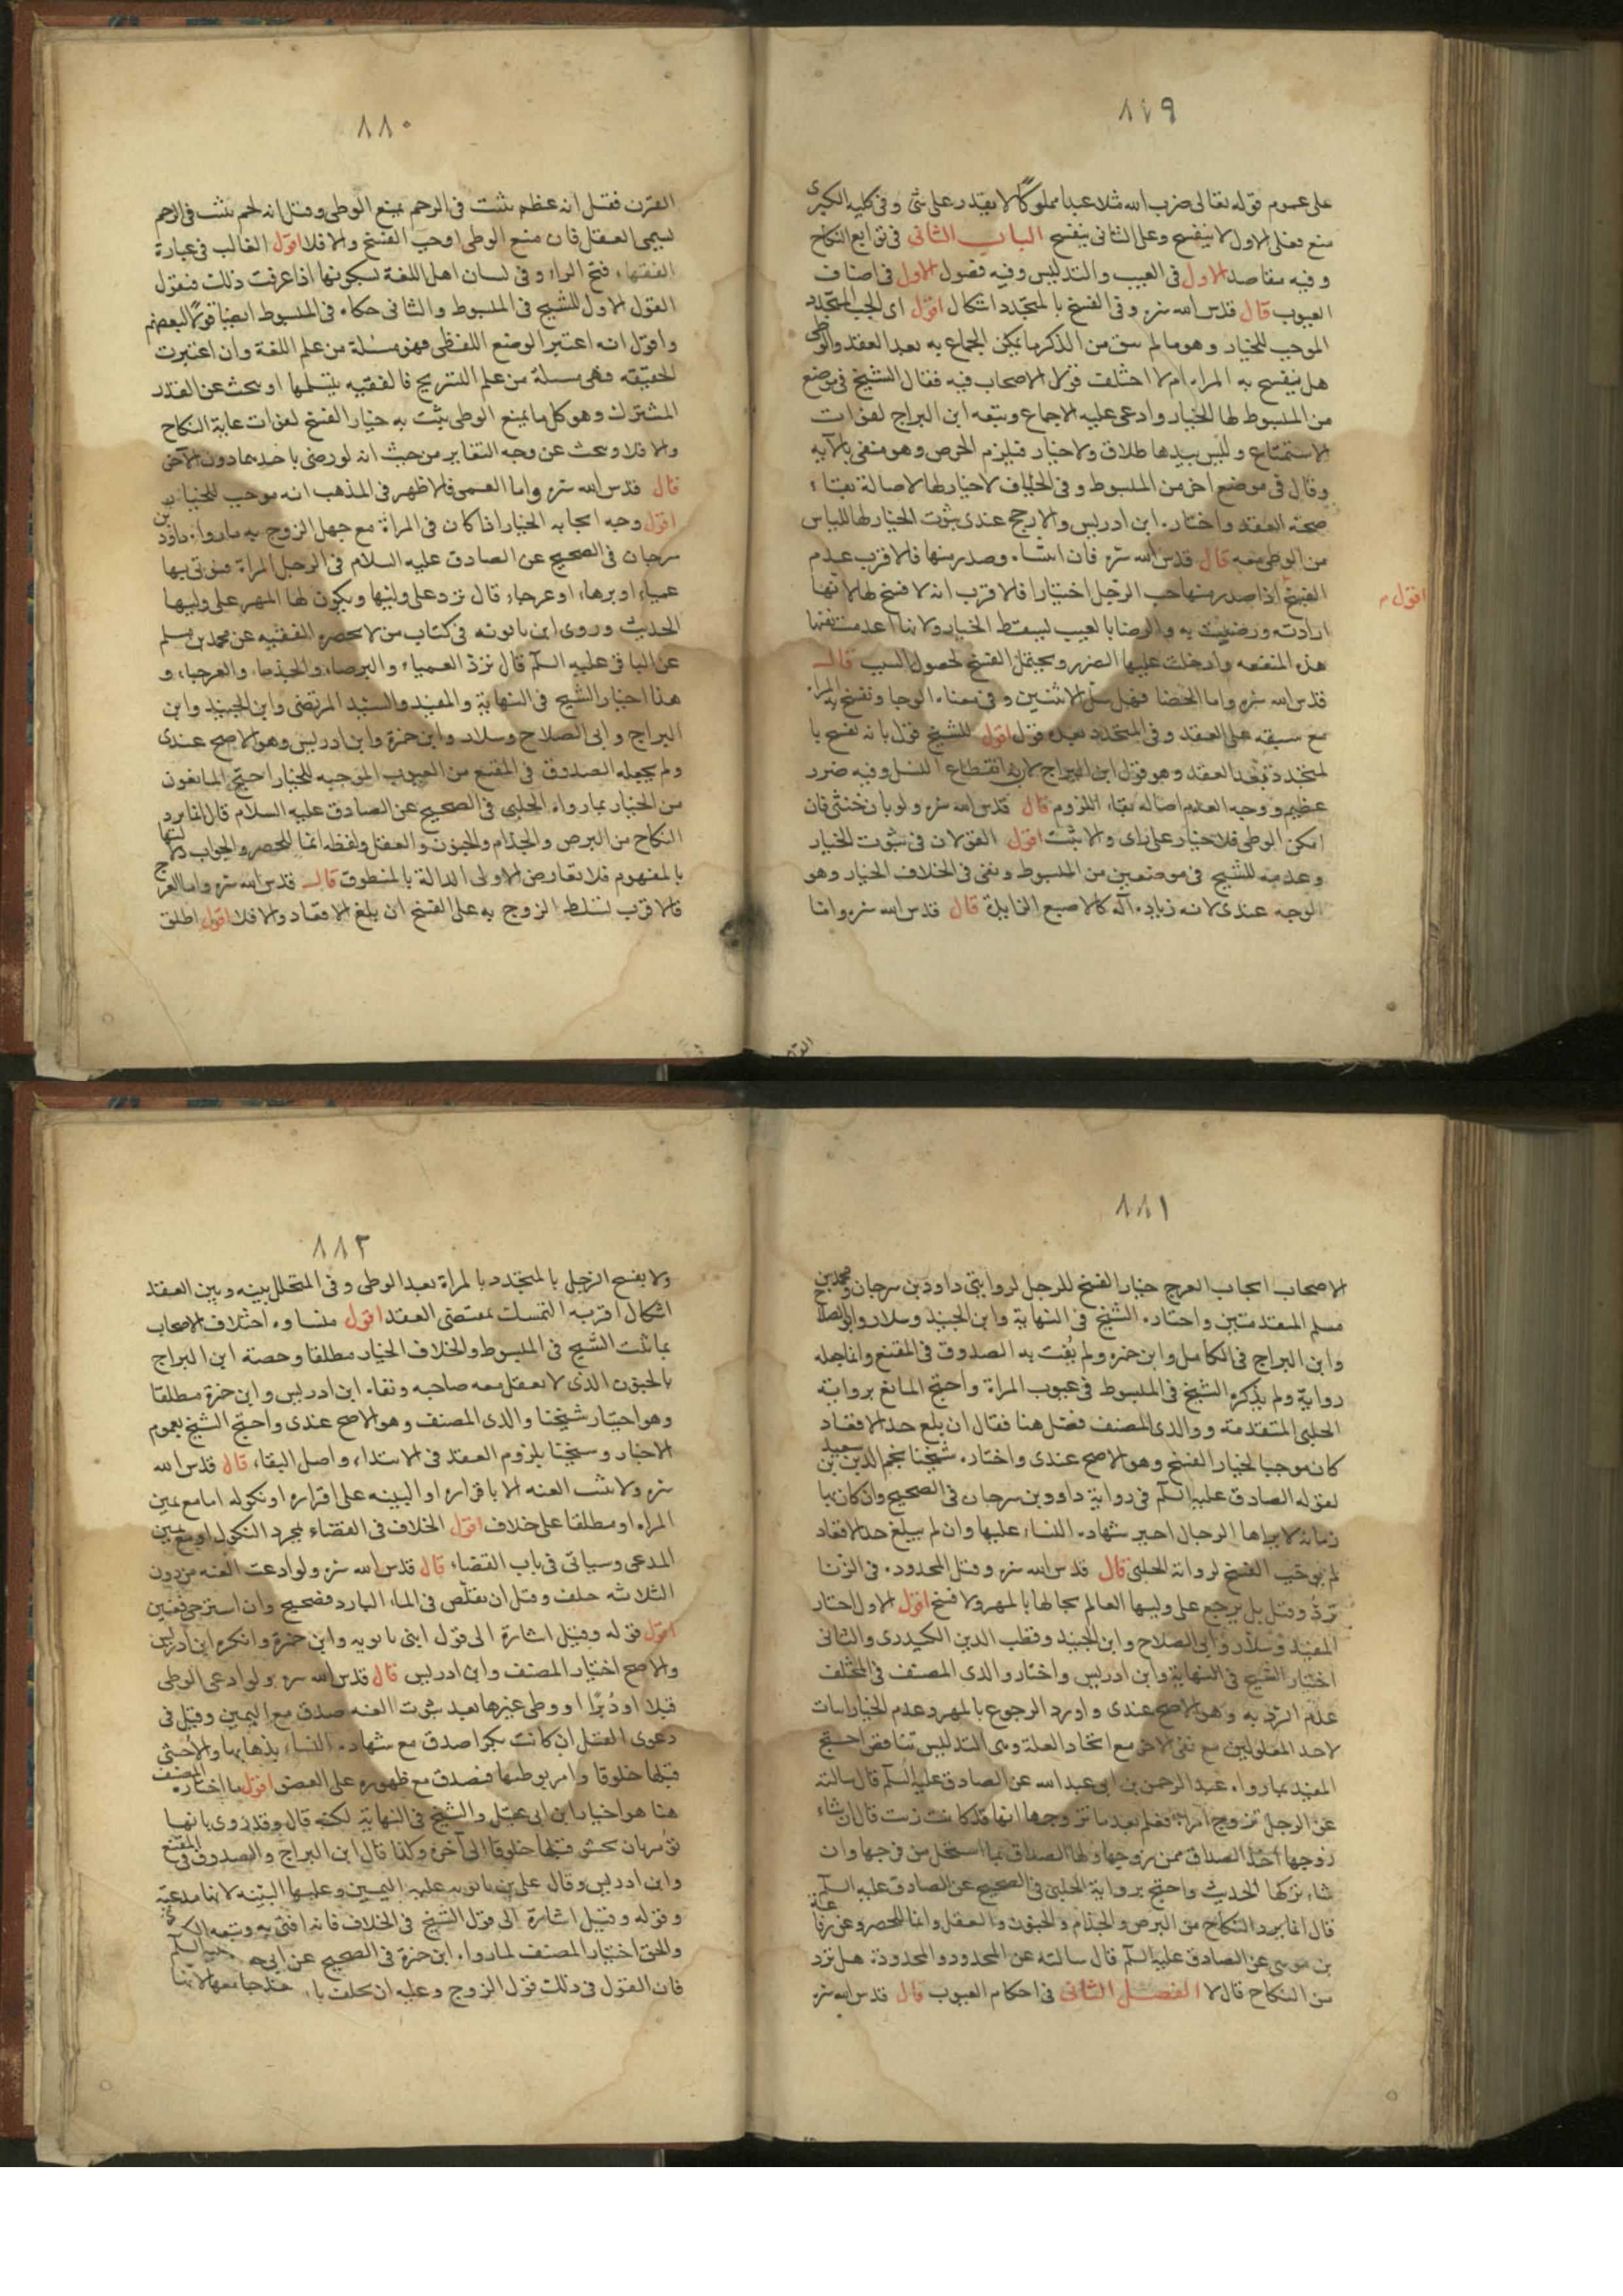 ٨٧٩
على عموم قوله تعالى ضرب الله مثلا عبدا مملوكا لا يقدر على شئ وفى كليه الكبرى
منع فعلى الاول لا ينفسخ وعلى الثانى ينفسخ الباب الثانى فى توابع النكاح
وفيه مقاصد الاول فى العيب والتدليس وفيه فصول الاول فى اصناف
العيوب قال قدس الله سره وفى الفسخ بالمتجدد اشكال اقول اى الجب المتجدد
الموجب للخيار وهو ما لم يبق من الذكر ما يمكن الجماع به بعد العقد والوطى
هل ينفسخ به المراه ام لا اختلف قول الاصحاب فيه فقال الشيخ فى موضع
من المبسوط لها الخيار وادعى عليه الاجماع وتبعه ابن البراج لفوات
الاستمتاع وليس بيدها طلاق ولا خيار فيلزم الحرص وهو منفى بالآيه
وقال فى موضع اخر من المبسوط وفى الخلاف لا خيار لها لاصالة بقاء
صحة العقد واختاره ابن ادريس والارجح عندى ثبوت الخيار لها للياس
من الوطى معه قال قدس الله سره فان استند وصدر منها فالاقرب عدم
الفسخ اذا صدر منها جب الرجل اختيارا فالاقرب انه لا فسخ لها لانها
اقول
ارادته ورضيت به والرضا بالعيب ليسقط الخيار ولانها اعدمت نفسها
هذه المنفعه وادخلت عليها الضرر ويحتمل الفسخ لحصول السبب قال
قدس الله سره واما الخصا فهو سل الانثيين وفى معناه الوجا وتفسخ به المراه
مع سبقه على العقد وفى المتجدد بعده قول اقول للشيخ قول بانه تفسخ با
لمتجدد بعد العقد وهو قول ابن البراج لان فيه انقطاع النسل وفيه ضرر
عظيم ووجه العدم اصاله بقاء اللزوم قال قدس الله سره ولو بان خنثى فان
امكن الوطى فلا خيار على راى والا ثبت اقول القولان فى ثبوت الخيار
وعدمه للشيخ فى موضعين من المبسوط ونفى فى الخلاف الخيار وهو
الوجه عندى لانه زياده آله كالاصبع الزايدة قال قدس الله سره واما
٨٨٠
القرن فقيل انه عظم ينبت فى الرحم يمنع الوطى وقيل انه لحم ينبت فى الرحم
ليسمى العفل فان منع الوطى اوجب الفسخ والا فلا اقول الغالب فى عبارة
الفقهاء فتح الراء وفى لسان اهل اللغة بسكونها اذا عرفت ذلك فنقول
القول الاول للشيخ فى المبسوط والثانى حكاه فى المبسوط ايضا قولا لبعضهم
واقول انه اعتبر الوضع اللفظى فهو مسئلة من علم اللغة وان اعتبرت
الحقيقه فهى مسئلة من علم التشريح فالفقيه يتسلمها او يبحث عن القدر
المشترك وهو كل ما يمنع الوطى يثبت به خيار الفسخ لفوات غاية النكاح
والا فلا ويبحث عن وجه التغاير من حيث انه لو رضى باحدهما دون الآخر
قال قدس الله سره واما العمى فالاظهر فى المذهب انه موجب للخيار
اقول وجه ايجابه الخيار اذا كان فى المراة مع جهل الزوج به ما رواه داود بن
سرحان فى الصحيح عن الصادق عليه السلام فى الرجل المراة فيؤتى بها
عمياء او برصاء او عرجاء قال ترد على وليها ويكون لها المهر على وليها
الحديث وروى ابن بابويه فى كتاب من لا يحضره الفقيه عن محمد بن مسلم
عن الباقر عليه السلم قال ترد العمياء والبرصاء والجذماء والعرجاء و
هذا اختيار الشيخ فى النهاية والمفيد والسيد المرتضى وابن الجنيد وابن
البراج وابى الصلاح وسلار وابن حمزة وابن ادريس وهو الاصح عندى
ولم يجعله الصدوق فى المقنع من العيوب الموجبه للخيار احتج المانعون
من الخيار بما رواه الحلبى فى الصحيح عن الصادق عليه السلام قال انما يرد
النكاح من البرص والجذام والجنون والعفل ولفظه انما للحصر والجواب دلالتها
بالمفهوم فلا تعارض الاولى الدالة بالمنطوق قال قدس الله سره واما العرج
فالاقرب تسلط الزوج به على الفسخ ان بلغ الاقعاد والا فلا اقول اطلق
٨٨١
الاصحاب ايجاب العرج خيار الفسخ للرجل لروايتى داود بن سرحان ومحمد بن
مسلم المتقدمتين واختاره الشيخ فى النهاية وابن الجنيد وسلار وابو الصلاح
وابن البراج فى الكامل وابن حمزه ولم يُفت به الصدوق فى المقنع وانما جعله
رواية ولم يذكره الشيخ فى المبسوط فى عيوب المراة واحتج المانع برواية
الحلبى المتقدمة ووالدى المصنف فصل هنا فقال ان بلغ حد الاقعاد
كان موجبا لخيار الفسخ وهو الاصح عندى واختاره شيخنا نجم الدين بن سعيد
لقوله الصادق عليه السلم فى رواية داود بن سرحان فى الصحيح وان كان بها
زمانة لا يراها الرجال اجيز شهاده النساء عليها وان لم يبلغ حد الاقعاد
لم يوجب الفسخ لرواية الحلبى قال قدس الله سره وقيل المحدوده فى الزنا
ترد وقيل بل يرجع على وليها العالم بحالها بالمهر ولا فسخ اقول الاول اختار
المفيد وسلار وابى الصلاح وابن الجنيد وقطب الدين الكيدرى والثانى
اختيار الشيخ فى النهاية وابن ادريس واختار والدى المصنف فى المختلف
عدم الرد به وهو الاصح عندى واورد الرجوع بالمهر وعدم الخيار اثبات
لاحد المعلولين مع نفى الآخر مع اتحاد العلة وهى التدليس تناقض احتج
المفيد بما رواه عبد الرحمن بن ابى عبد الله عن الصادق عليه السلم قال سالته
عن الرجل تزوج امراة فعلم بعد ما تزوجها انها قد كانت زنت قال ان شاء
زوجها اخذ الصداق ممن زوجها ولها الصداق بما استحل من فرجها وان
شاء تركها الحديث واحتج برواية الحلبى فى الصحيح عن الصادق عليه السلم
قال انما يرد النكاح من البرص والجذام والجنون والعفل وانما للحصر وعن رفاعة
بن موسى عن الصادق عليه السلم قال سالته عن المحدود والمحدودة هل ترد
من النكاح قال لا الفصل الثانى فى احكام العيوب قال قدس الله سره
٨٨٢
ولا يفسخ الرجل بالمتجدد بالمراة بعد الوطى وفى المتخلل بينه وبين العقد
اشكال اقربه التمسك بمقتضى العقد اقول منشاوه اختلاف الاصحاب
فاثبت الشيخ فى المبسوط والخلاف الخيار مطلقا وخصه ابن البراج
بالجنون الذى لا يعقل معه صاحبه ونفاه ابن ادريس وابن حمزة مطلقا
وهو اختيار شيخنا والدى المصنف وهو الاصح عندى واحتج الشيخ بعموم
الاخبار وشيخنا بلزوم العقد فى الابتداء واصل البقاء قال قدس الله
سره ولا يثبت العنه الا باقراره او البينه على اقراره او نكوله اما مع يمين
المراه او مطلقا على خلاف اقول الخلاف فى القضاء بمجرد النكول او مع يمين
المدعى وسياتى فى باب القضاء قال قدس الله سره ولو ادعت العنه من دون
الثلاثه حلف وقيل ان تقلص فى الماء البارد فصحيح وان استرخى فعنين
اقول قوله وقيل اشارة الى قول ابنى بابويه وابن حمزة وانكره ابن ادريس
والاصح اختيار المصنف وابن ادريس قال قدس الله سره ولو ادعى الوطى
قبلا او دُبرا او وطى غيرها بعد ثبوت العنه صدق مع اليمين وقيل فى
دعوى القبل ان كانت بكرا صدق مع شهاده النساء بذهابها والا حشى
قبلها خلوقا وامر بوطيها فيصدق مع ظهوره على العضو اقول ما اختاره المصنف
هنا هو اختيار ابن ابى عقيل والشيخ فى النهاية لكنه قال وقد روى بانها
تؤمر بان تحشو قبلها خلوقا الى آخره وكذا قال ابن البراج والصدوق فى المقنع
وابن ادريس وقال على بن بابويه عليه اليمين وعليها البينه لانها مدعية
وقوله وقيل اشارة الى قول الشيخ فى الخلاف فانه افتى به وتبعه
والحق اختيار المصنف لما رواه ابن حمزة فى الصحيح عن ابى عليه السلم
فان القول فى ذلك قول الزوج وعليه ان يحلف بالله لقد جامعها لانها